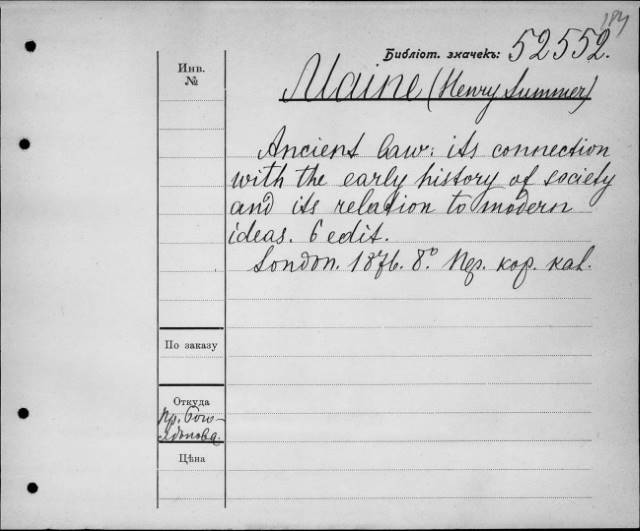 184
Библіот. значекъ: 52552.
Инв.
№
Maine (Henry Summer)
Ancient law: its connection
with the early history of society
and its relation to modern
ideas. 6 edit.
London. 1876. 8° Пер. кор. каl.
По заказу
Откуда
Пр.
Цѣна